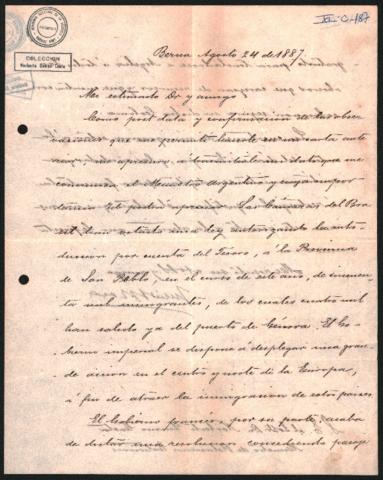 COLECCION
Berna Agosto 24 de 1887.
Mi estimado Dr y amigo
Como post data y
que me permito hacerle en mi carta ante
rior, me apresuro á transmitirle un dato que me
comunica el Ministro Argentino y cuya impor
tancia Vd podrá apreciar. Las Cámaras del Bra
sil, han votado una ley autorizando la intro-
duccion por cuenta del Tesoro, á la Provincia
de San Pablo, en el curso de este año, de cincuenta
mil inmigrantes, de los cuales cuatro mil
han salido ya del puerto de Génova. El Go-
bierno imperial se dispone á desplegar una gran
de accion en el centro y norte de la Europa,
á fin de atraer la inmigracion de estos paises.
El Gobierno francés, por su parte, acaba
de dictar una resolucion concediendo pasaje